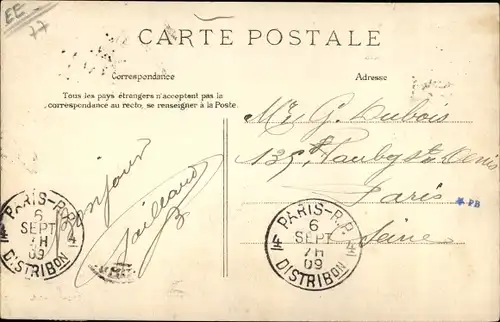 EE
77
CARTE POSTALE
Correspondance
Adresse
Tous les pays étrangers n'acceptent pas la
correspondance au recto, se renseigner à la Poste.
Bonjour
Mr G. Dubois
135 Faubg St Denis
Paris
Seine
PB
PARIS-R.P.
6
SEPT
7H
09
DISTRIBON
4
PARIS-R.P.
6
SEPT
7H
09
DISTRIBON